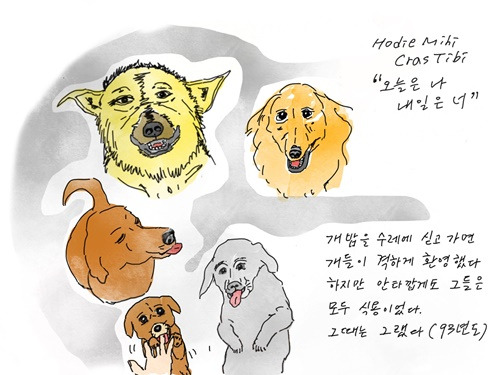 Hodie Mihi
Cras Tibi
"오늘은 나
내일은 너"
개밥을 수레에 싣고 가면
개들이 격하게 환영했다
하지만 안타깝게도 그들은
모두 식용이었다.
그때는 그랬다 (93년도)